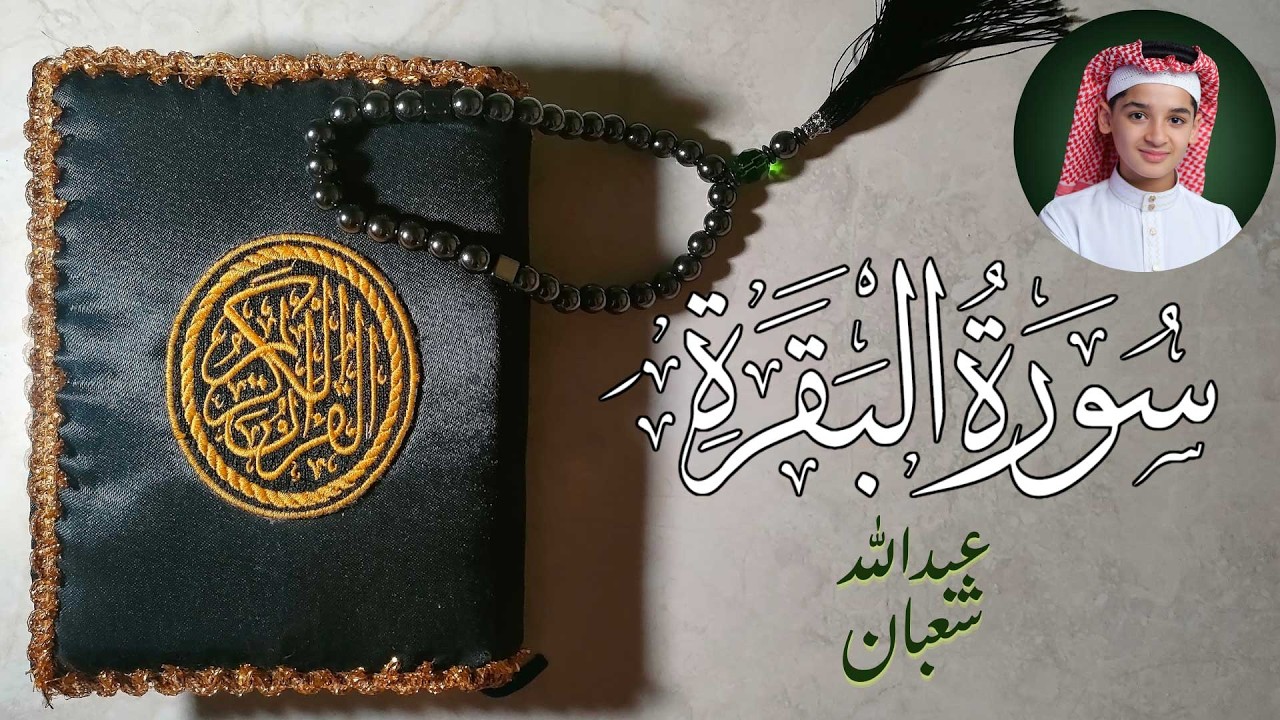 القرآن الكريم
سُورَةُ البَقَرَةِ
عبدالله
شعبان